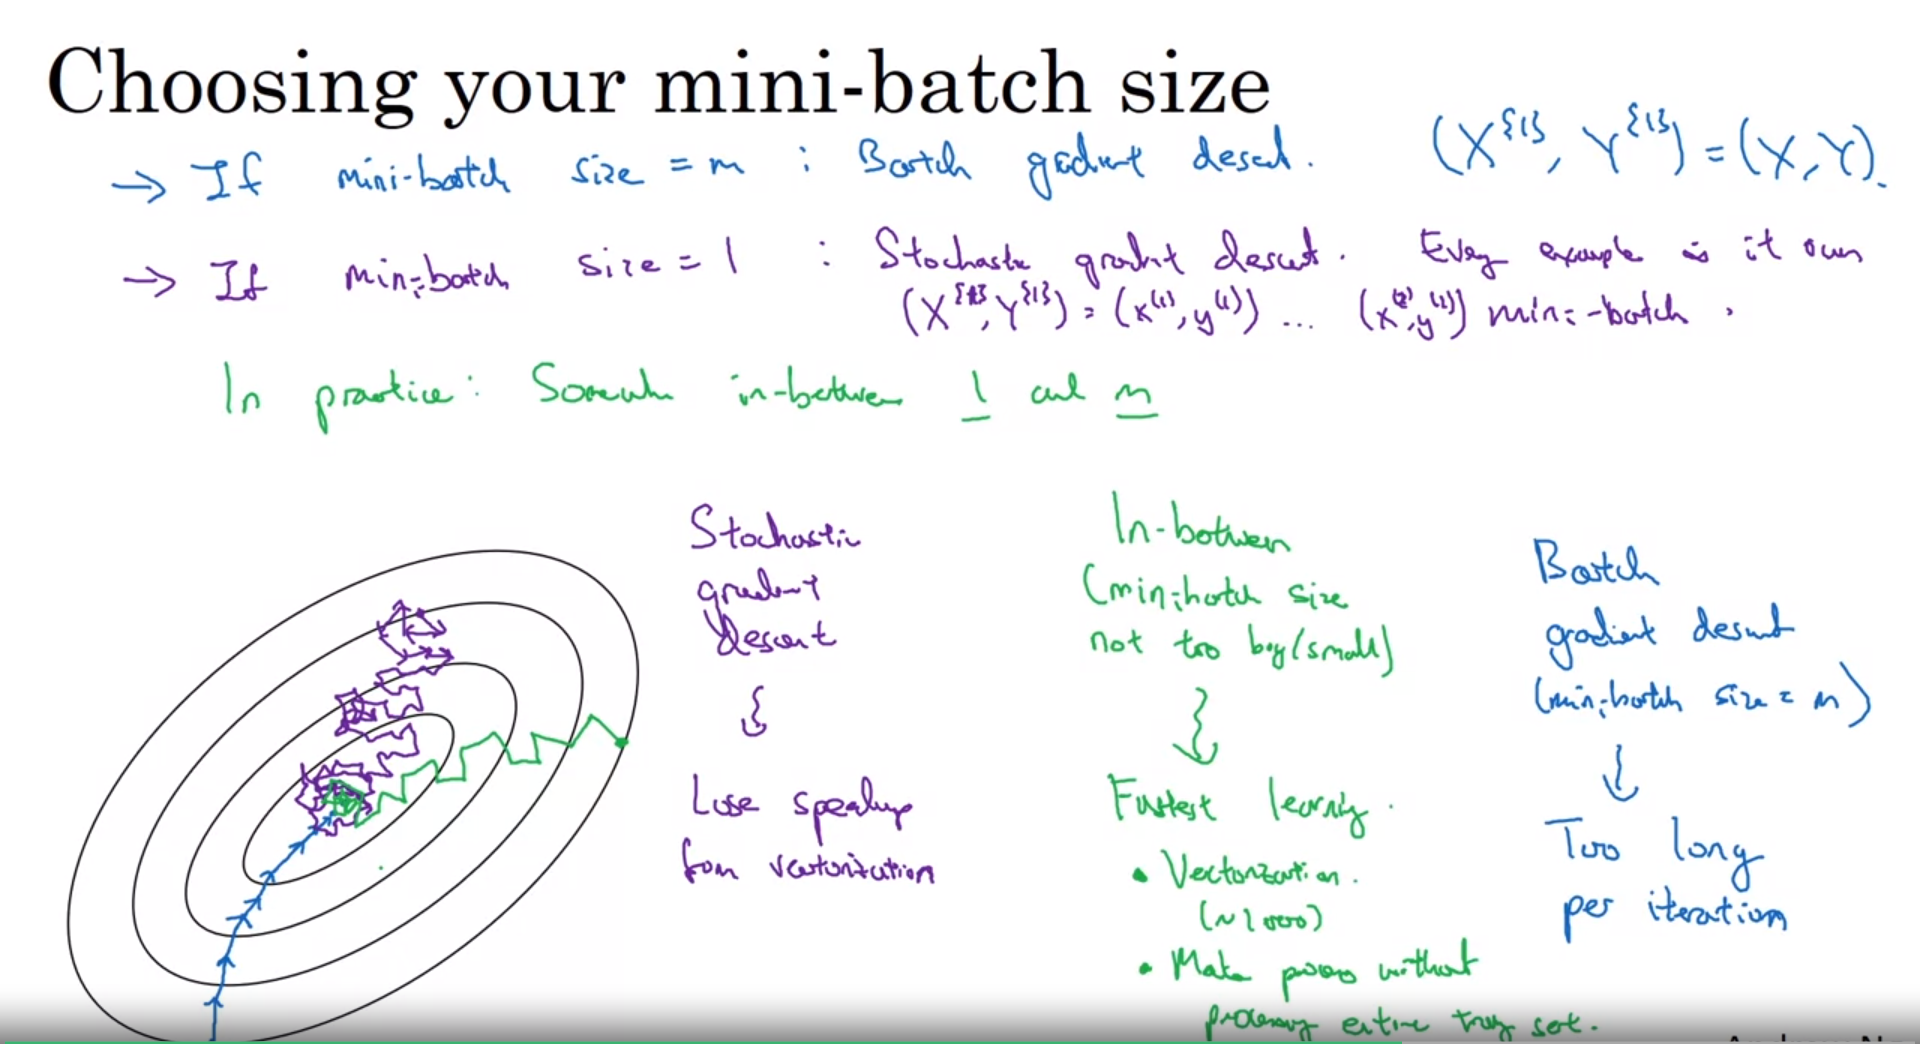 Choosing your mini-batch size
→ If mini-batch size = m : Batch gradient descent. (X^{1}, Y^{1}) = (X, Y).
→ If mini-batch size = 1 : Stochastic gradient descent. Every example is it own
(X^{1}, Y^{1}) = (x^(1), y^(1)) ... (x^(2), y^(2)) mini-batch.
In practice: Somewhere in-between 1 and m
Stochastic
gradient
descent
Lose speedup
from vectorization
In-between
(mini-batch size
not too big/small)
Fastest learning.
• Vectorization.
(~1000)
• Make progress without
processing entire training set.
Batch
gradient descent
(mini-batch size = m)
Too long
per iteration